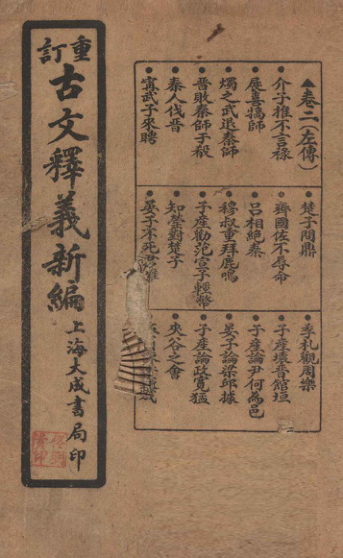 重訂
古文釋義新編
上海大成書局印
▲卷二（左傳）
●介子推不言祿
●展喜犒師
●燭之武退秦師
●晉敗秦師于殽
●秦人伐晉
●甯武子來聘
●楚子問鼎
●齊國佐不辱命
●呂相絕秦
●穆叔重拜鹿鳴
●子產勸范宣子輕幣
●知罃對楚子
●晏子不死君難
●季札觀周樂
●子產壞晉館垣
●子產論尹何為邑
●晏子論梁邱據
●子產論政寬猛
●夾谷之會